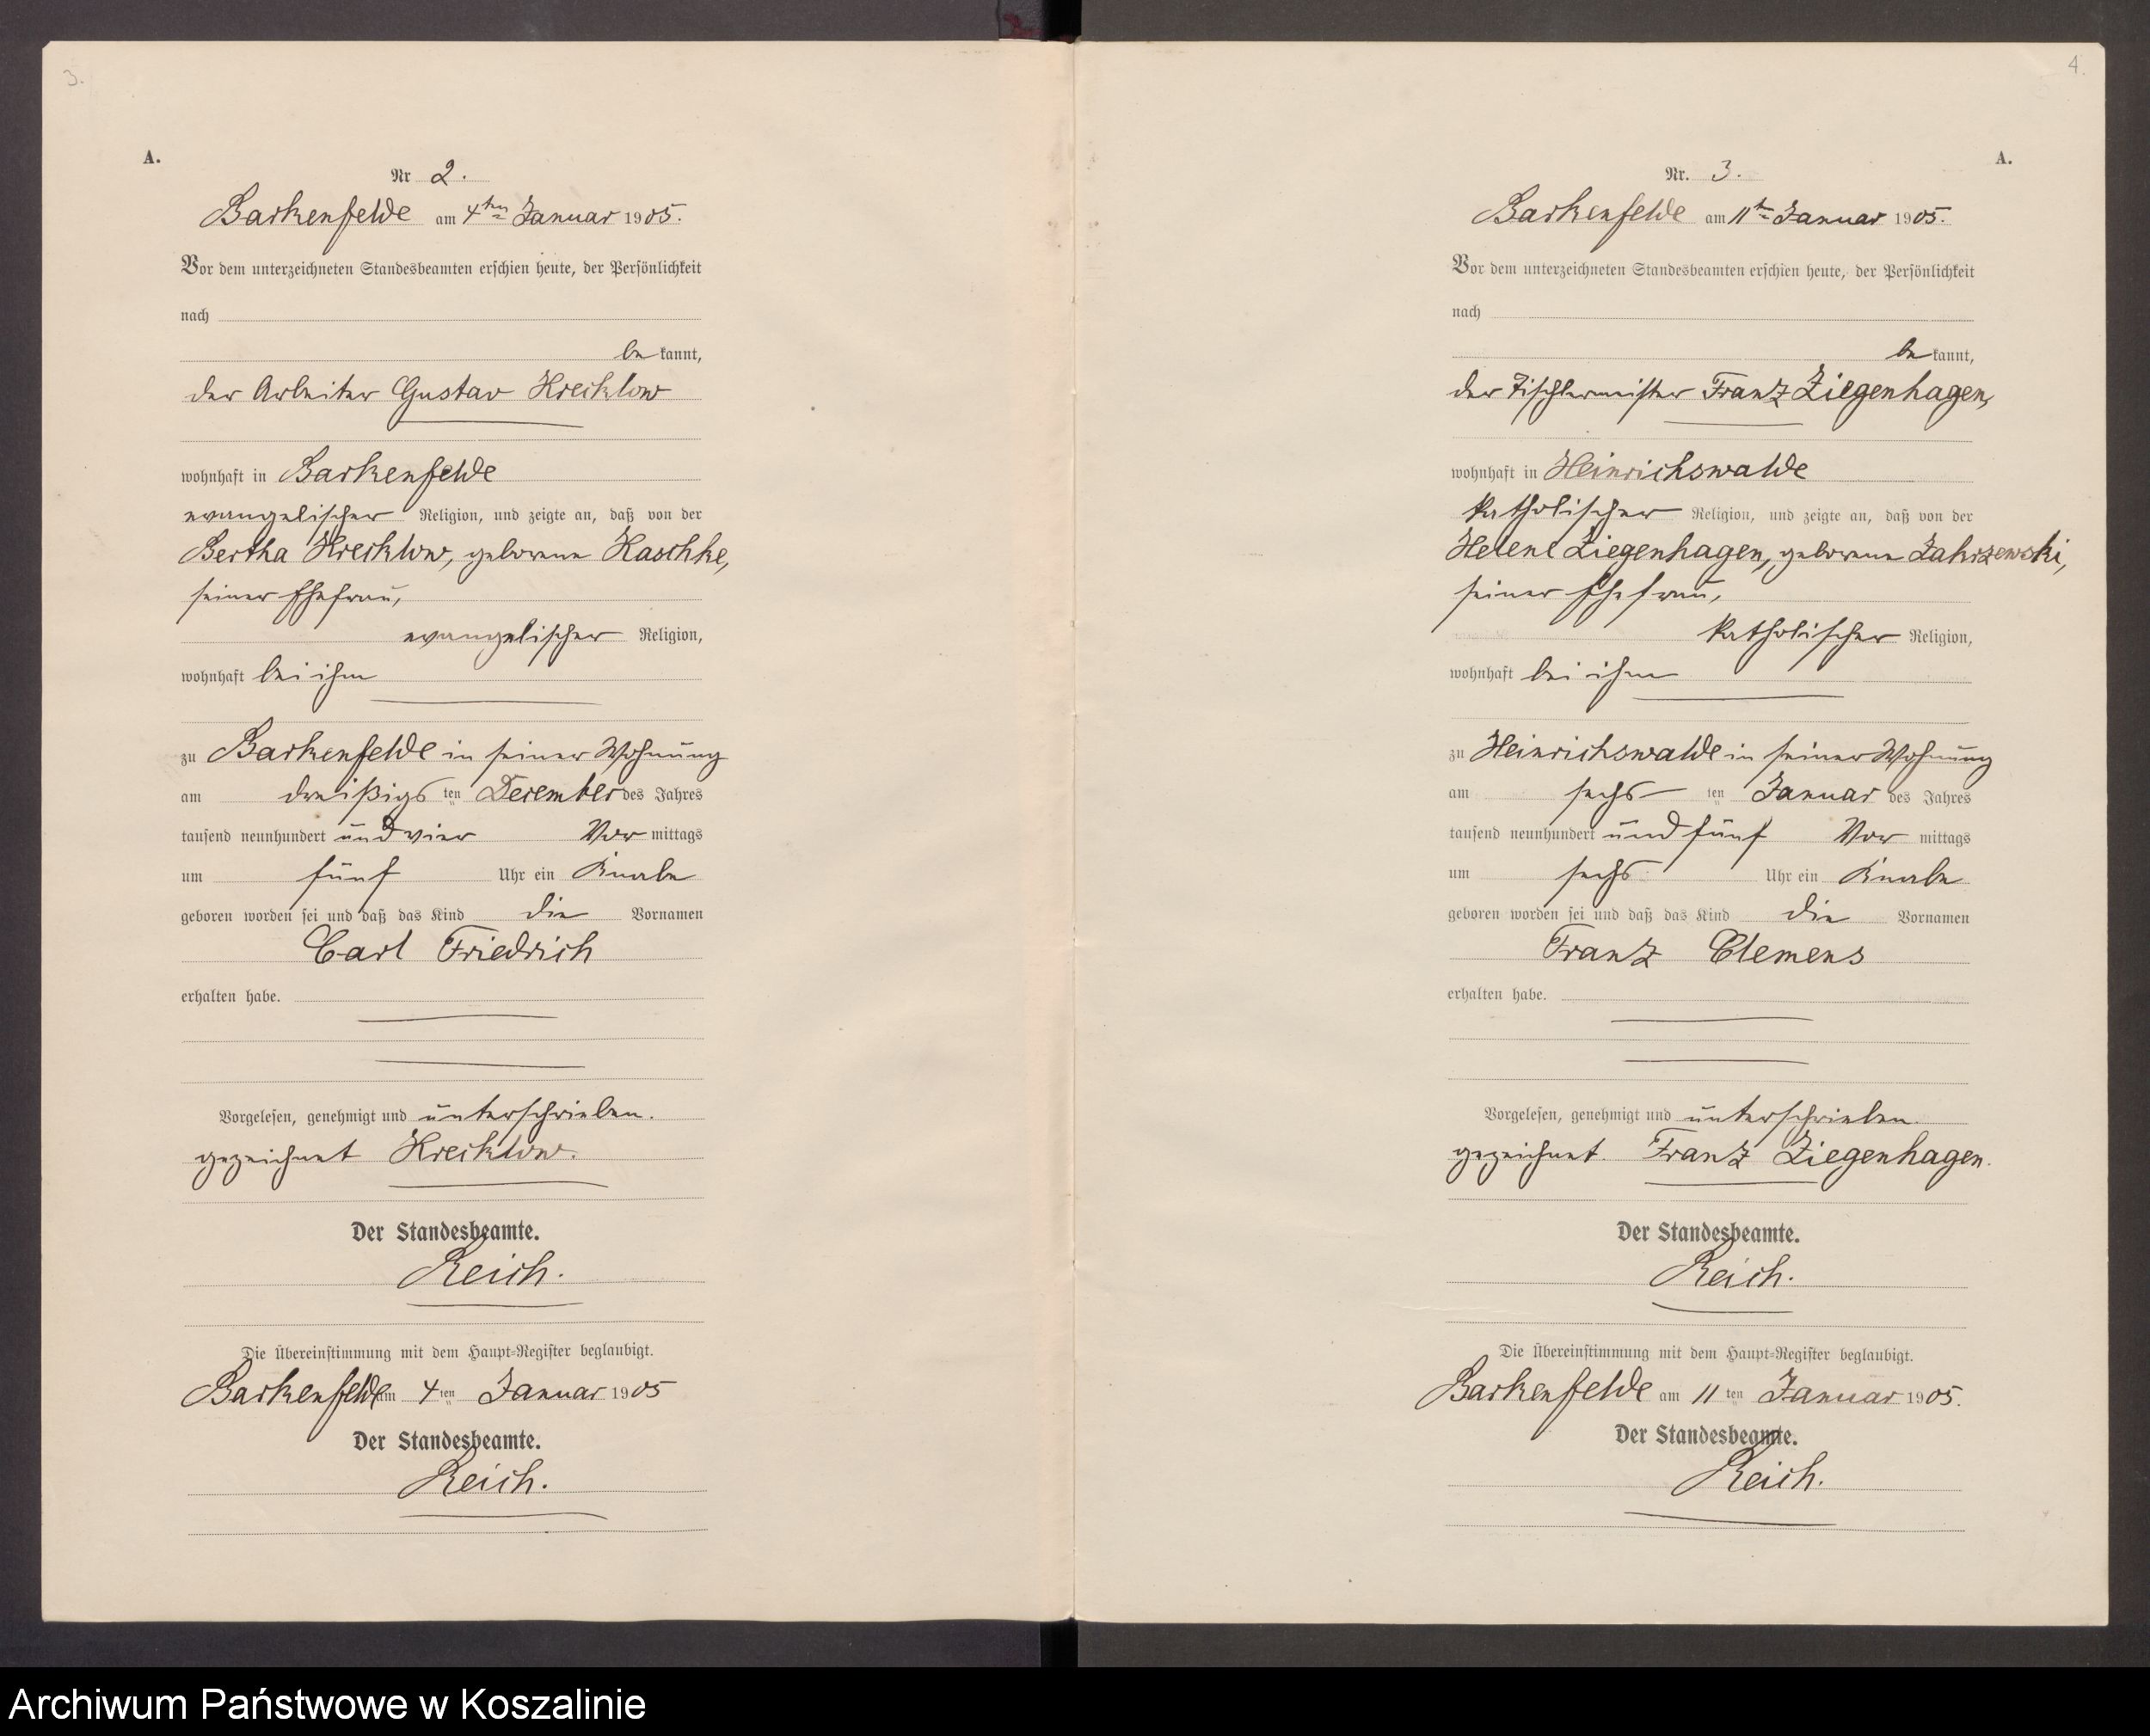 3.
A.
Nr 2.
Barkenfelde am 4ten Januar 1905.
Vor dem unterzeichneten Standesbeamten erschien heute, der Persönlichkeit
nach
be kannt,
der Arbeiter Gustav Krecklow
wohnhaft in Barkenfelde
evangelischer Religion, und zeigte an, daß von der
Bertha Krecklow, geborene Haschke,
seiner Ehefrau,
evangelischer Religion,
wohnhaft bei ihm
zu Barkenfelde in seiner Wohnung
am dreißigs ten December des Jahres
tausend neunhundert und vier Vor mittags
um fünf Uhr ein Knabe
geboren worden sei und daß das Kind die Vornamen
Carl Friedrich
erhalten habe.
Vorgelesen, genehmigt und unterschrieben.
gezeichnet Krecklow.
Der Standesbeamte.
Reich.
Die Übereinstimmung mit dem Haupt-Register beglaubigt.
Barkenfelde am 4 ten Januar 1905
Der Standesbeamte.
Reich.
4.
A.
Nr. 3.
Barkenfelde am 11ten Januar 1905.
Vor dem unterzeichneten Standesbeamten erschien heute, der Persönlichkeit
nach
be kannt,
der Tischlermeister Franz Ziegenhagen,
wohnhaft in Heinrichswalde
katholischer Religion, und zeigte an, daß von der
Helene Ziegenhagen, geborene Zahrzewski,
seiner Ehefrau,
katholischer Religion,
wohnhaft bei ihm
zu Heinrichswalde in seiner Wohnung
am sechs ten Januar des Jahres
tausend neunhundert und fünf Vor mittags
um sechs Uhr ein Knabe
geboren worden sei und daß das Kind die Vornamen
Franz Clemens
erhalten habe.
Vorgelesen, genehmigt und unterschrieben.
gezeichnet. Franz Ziegenhagen.
Der Standesbeamte.
Reich.
Die Übereinstimmung mit dem Haupt-Register beglaubigt.
Barkenfelde am 11 ten Januar 1905.
Der Standesbeamte.
Reich.
Archiwum Państwowe w Koszalinie